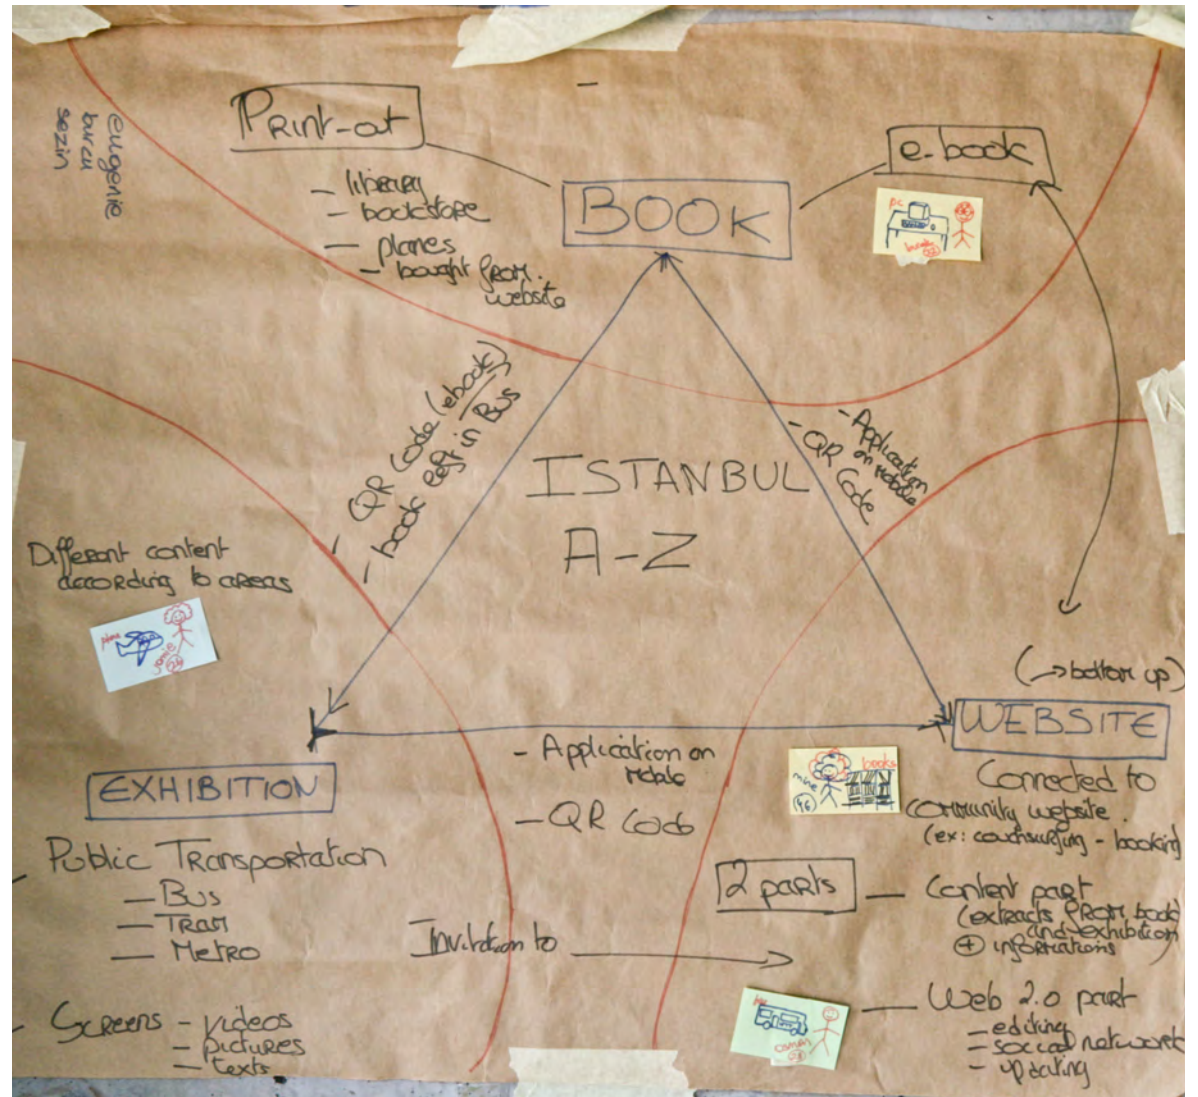 eugenie
burcu
sezin
PRint-out
- library
- bookstore
- planes
- bought from
website
BOOK
e.book
pc
burak
- QR Code (ebook)
- book left in Bus
- Application
on mobile
- QR Code
ISTANBUL
A-Z
Different content
according to areas
plane
jamie
24
(→ bottom up)
WEBSITE
Connected to
community website.
(ex: couchsurfing - booking
mine
46
books
- Application on
mobile
- QR Code
EXHIBITION
Public Transportation
- Bus
- Tram
- Metro
Invitation to
- Screens - videos
- pictures
- texts
2 parts
- Content part
(extracts from book
and exhibition)
+ informations
- Web 2.0 part
- editing
- social network
- updating
osman